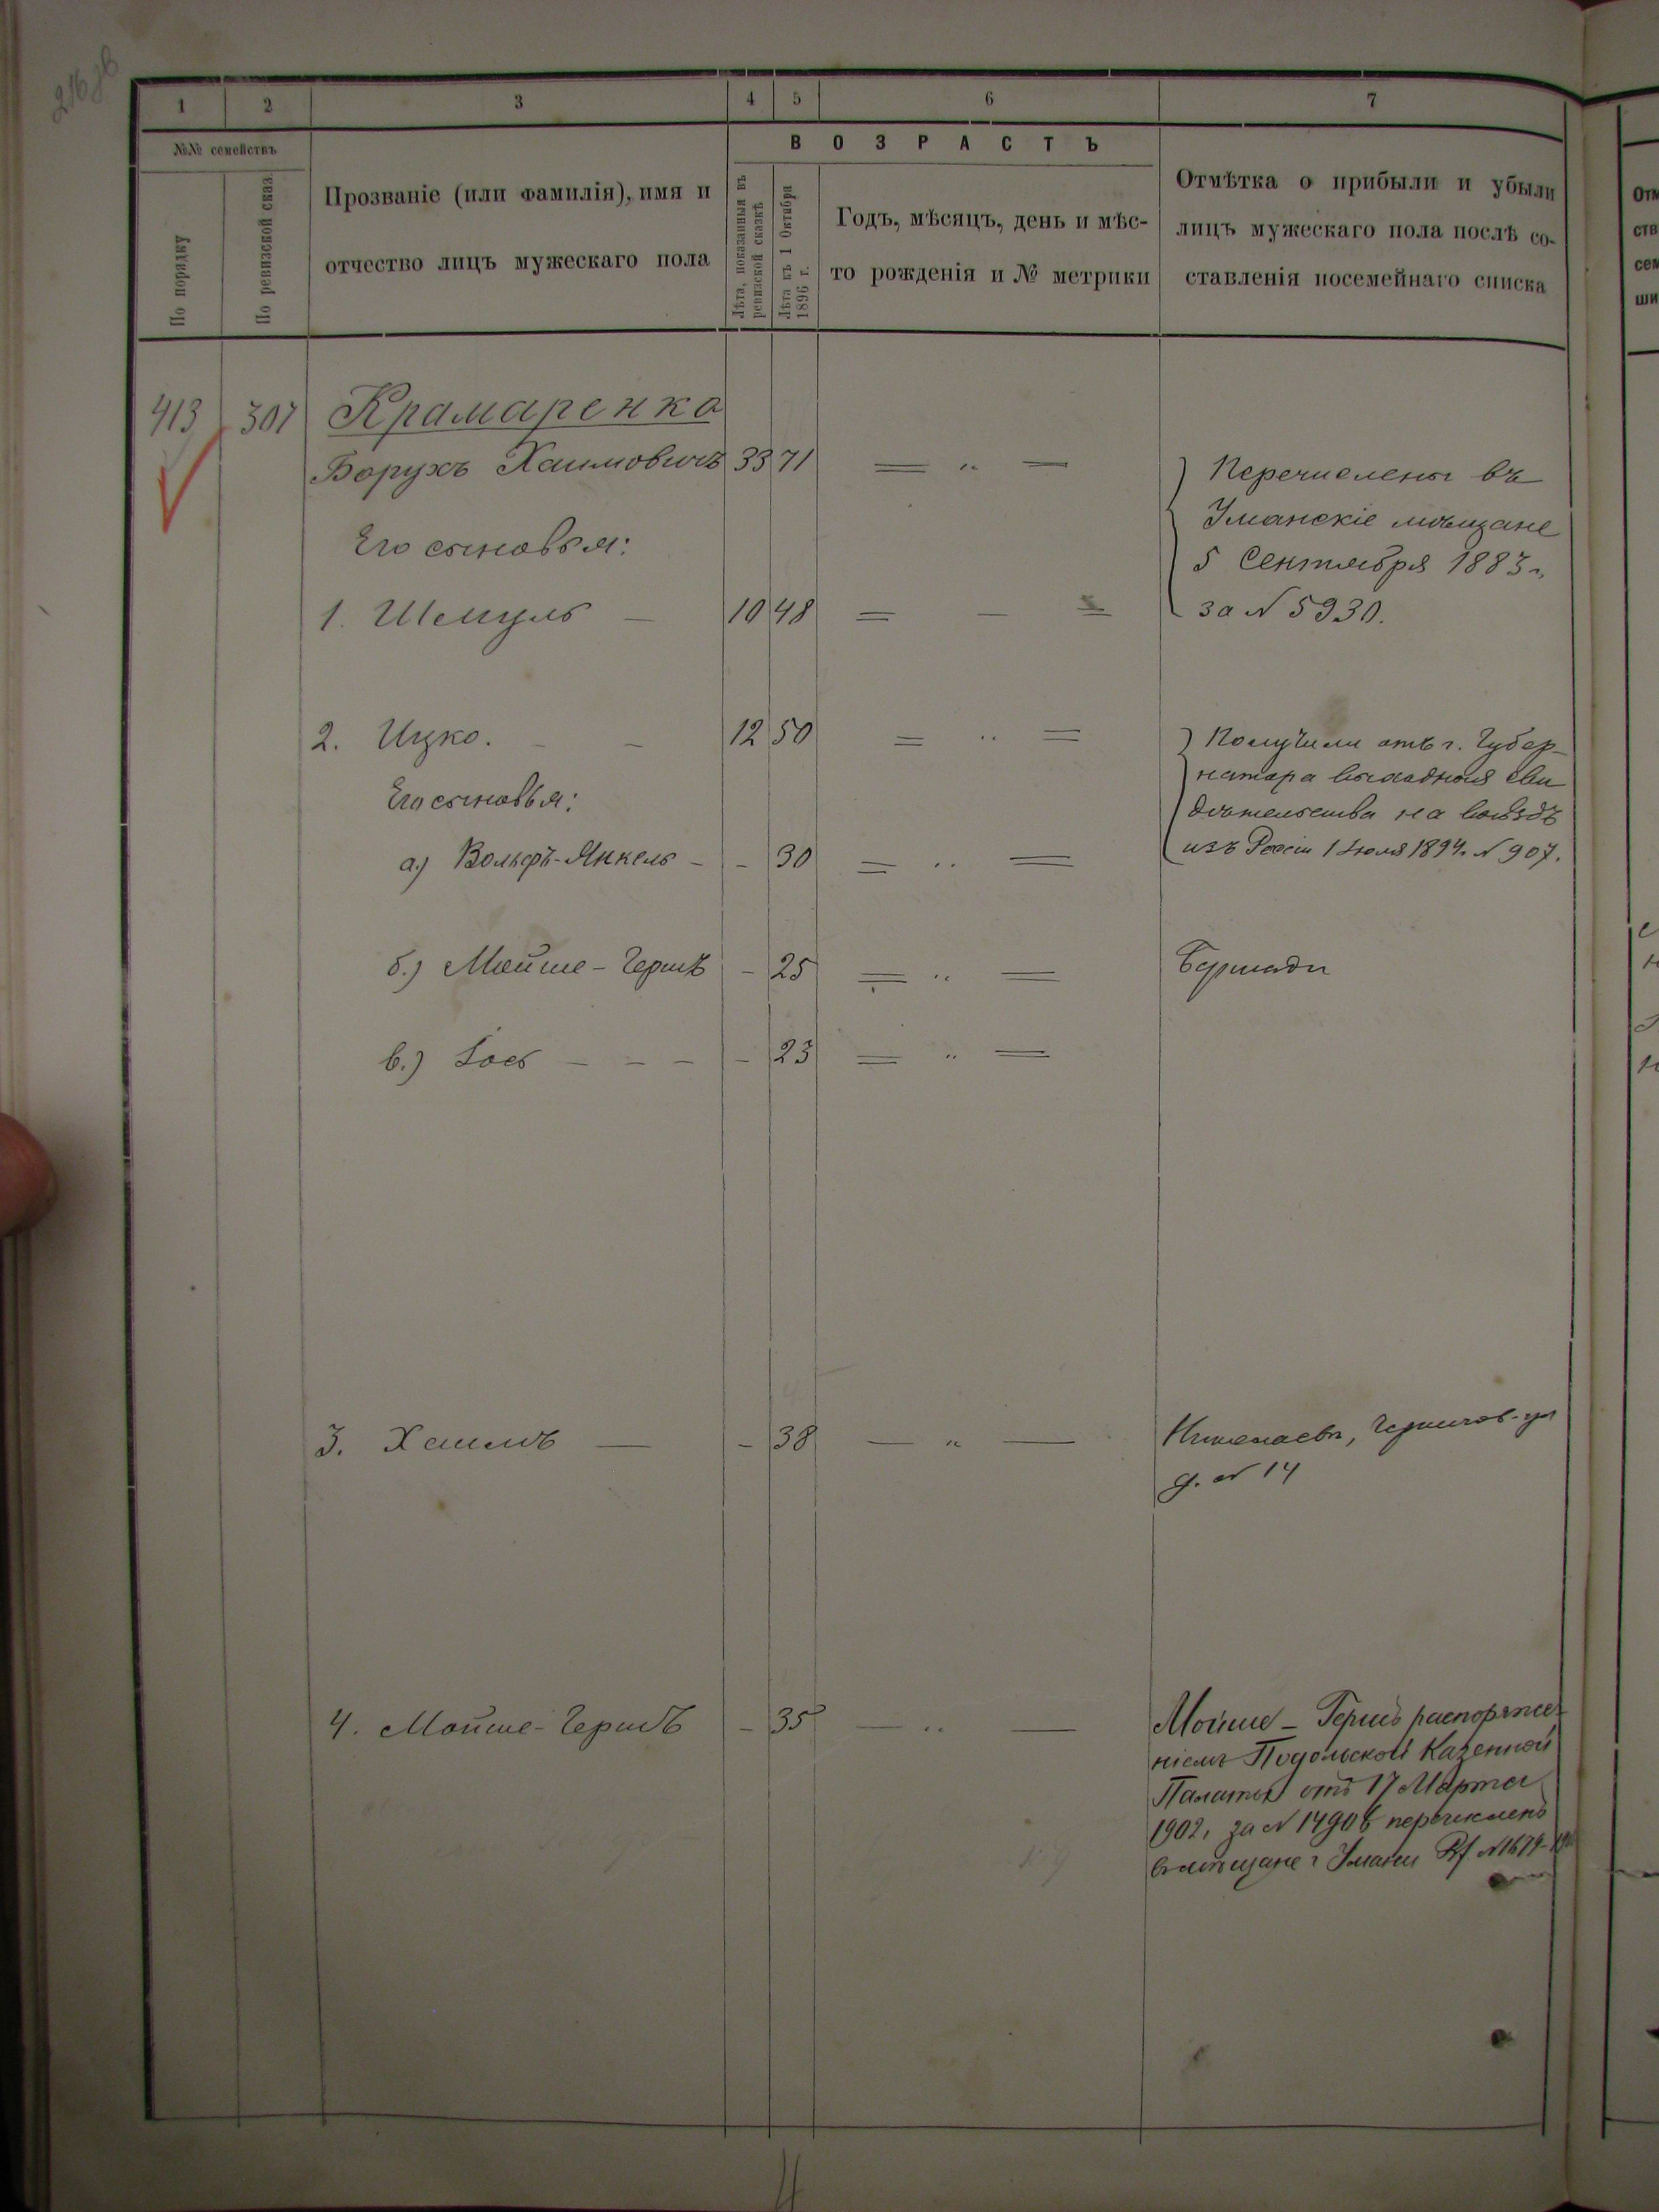 216 об
1 2 3 4 5 6 7
№№ семействъ
По порядку
По ревизской сказ.
Прозваніе (или фамилія), имя и
отчество лицъ мужескаго пола
ВОЗРАСТЪ
Лѣта, показанныя въ
ревизской сказкѣ
Лѣта къ 1 Октября
1896 г.
Годъ, мѣсяцъ, день и мѣс-
то рожденія и № метрики
Отмѣтка о прибыли и убыли
лицъ мужескаго пола послѣ со-
ставленія посемейнаго списка
413 307 Крамаренко
Борухъ Хаимовичъ 33 71 — „ —
Перечислены въ
Уманскіе мѣщане
5 Сентября 1883 г.
за № 5930.
Его сыновья:
1. Шмуль — 10 48 = — =
2. Ицко. - - 12 50 = „ =
Получили отъ г. Губер-
натора выходныя сви
дѣтельства на выѣздъ
изъ Россіи 1 Іюля 1894 г. № 907.
Его сыновья:
а.) Вольфъ-Янкель - - 30 = „ =
б.) Мойше-Гершъ - 25 = „ = Бершади
в.) Іось - - - - 23 = „ =
3. Хаимъ — - 38 — „ — Николаевъ,
д. № 14
4. Мойше-Гершъ - 35 — „ —
Мойше-Гершъ распоряже-
ніемъ Подольской Казенной
Палаты отъ 17 Марта
1902, за № 14906 перечисленъ
въ мѣщане г. Умани № 1674